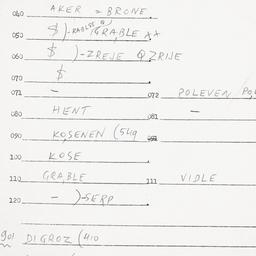 040 AKER = BRONE
050 $ )-RABLSE @) GRABLE xx
060 $ )-ZREJE Q ZRIJE
070 $
071 - 072 POLEVEN
080 HENT 081 -
090 KOSENEN (549
100 KOSE
110 GRABLE 111 VIDLE
120 - )-SERP
901 DIGROZ (410